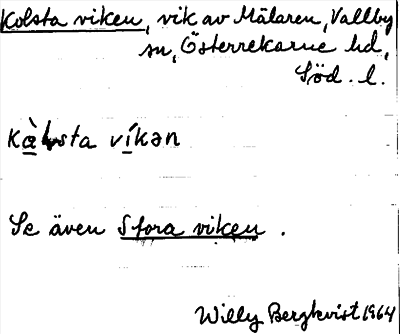 Kolsta viken, vik av Mälaren, Vallby
sn, Österrekarne hd,
Söd. l.
víkən
Se även Stora viken.
Willy Bergkvist 1964